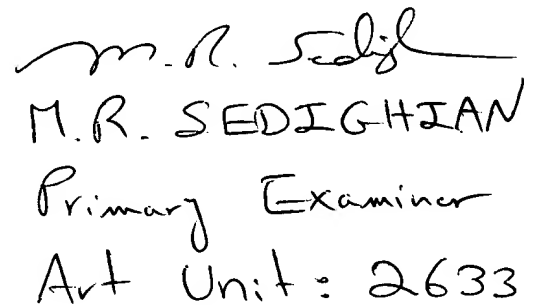 M.R. Sedigh
M.R. SEDIGHIAN
Primary Examiner
Art Unit: 2633